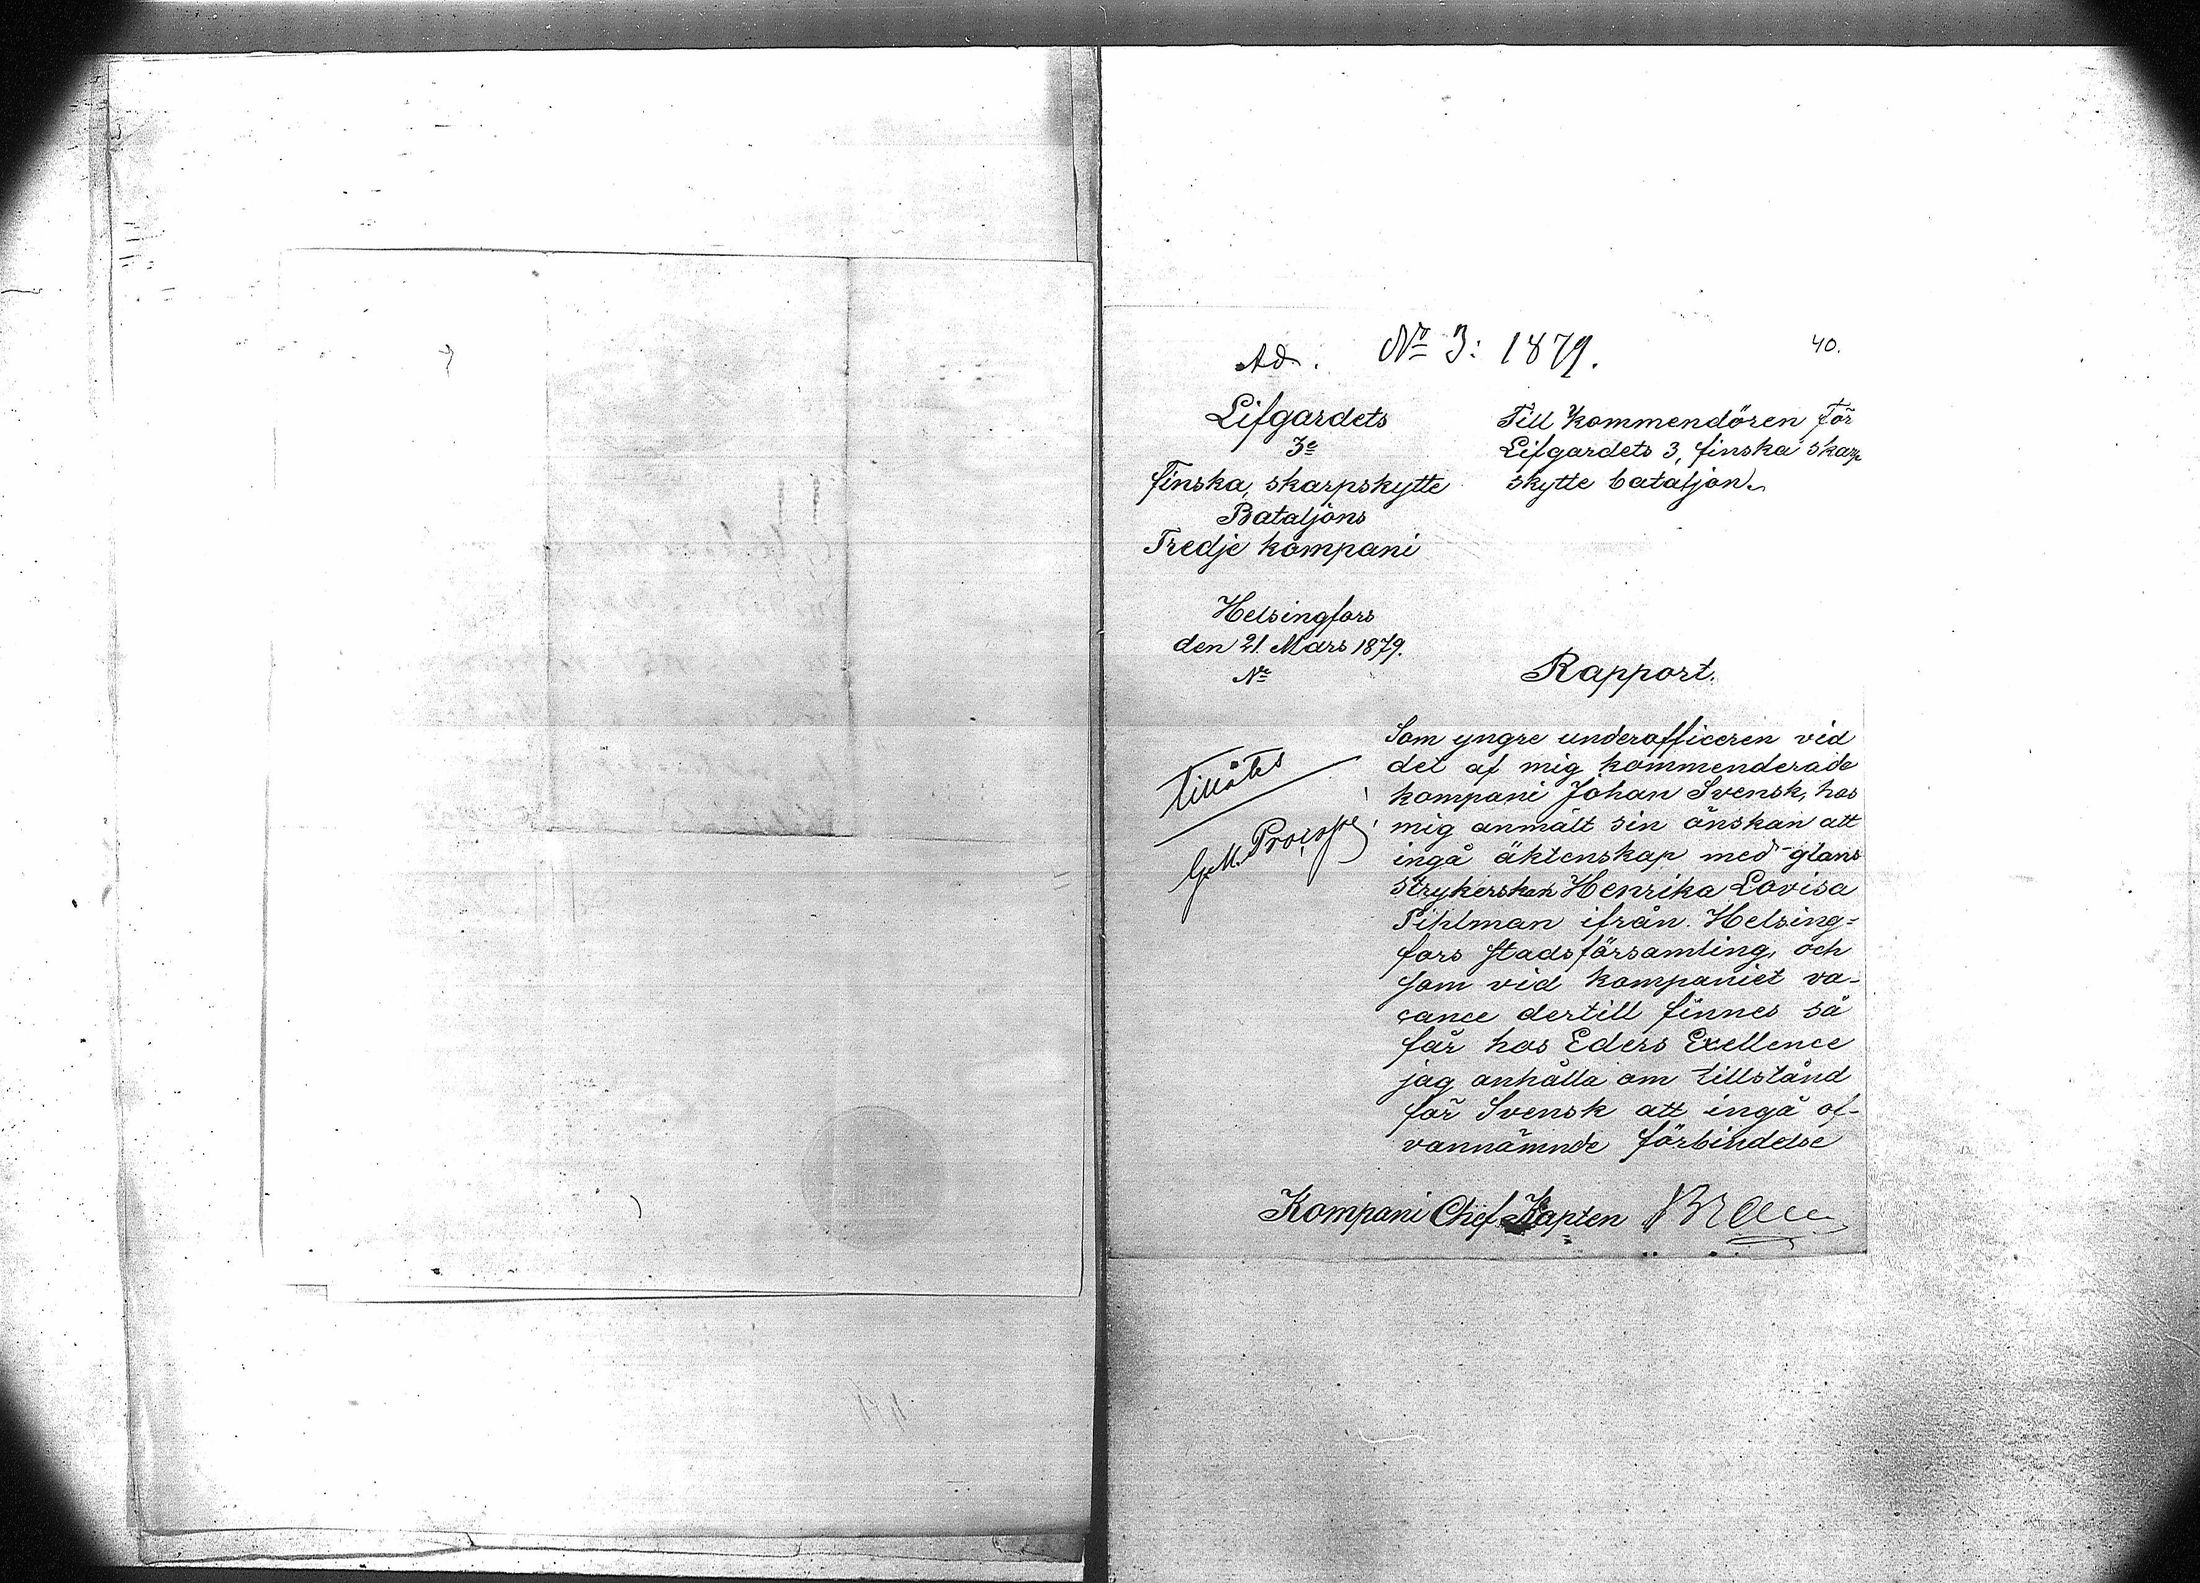 Ad. No 3: 1879.
40.
Lifgardets
3e
finska, skarpskytte
Bataljons
Tredje kompani
Helsingfors
den 21. Mars 1879.
No
Till Kommendören för
Lifgardets 3, finska skarp
skytte bataljon.
Rapport.
Som yngre underofficeren vid
det af mig kommenderade
kompani Johan Svensk, hos
mig anmält sin önskan att
ingå äktenskap med glans
strykerskan Henrika Lovisa
Pihlman ifrån Helsing=
fors stadsförsamling, och
som vid kompaniet va-
cance dertill finnes så
får hos Eders Exellence
jag anhålla om tillstånd
för Svensk att ingå of-
vannämnde förbindelse
Tillåtes
G.M. Procopé
Kompani Chef Kapten